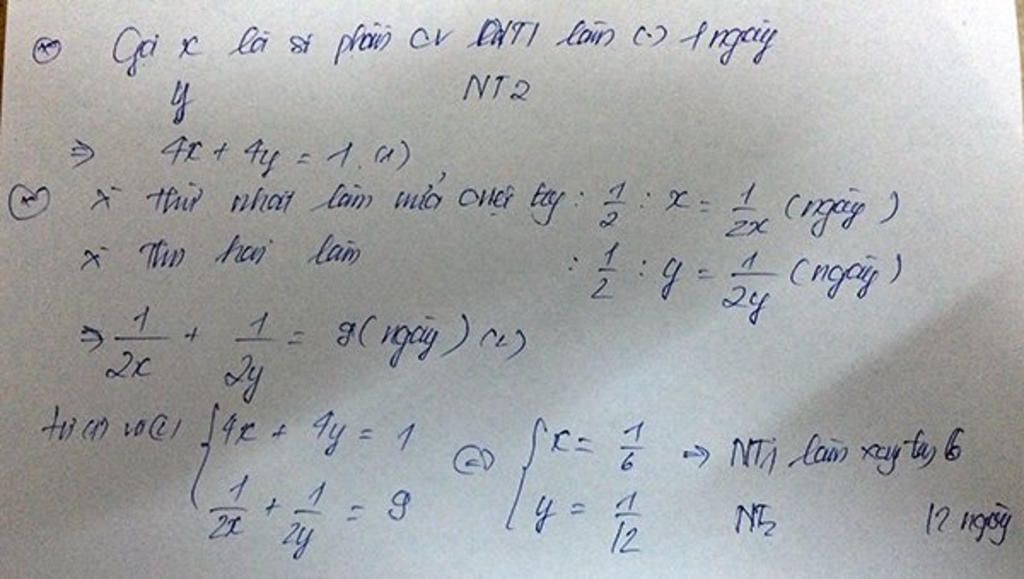 Gọi x là số phần CV NT1 làm (-) 1 ngày
y NT2
=> 4x + 4y = 1 (1)
thứ nhất làm nửa : 1/2 : x = 1/2x (ngày)
Thứ hai làm : 1/2 : y = 1/2y (ngày)
=> 1/2x + 1/2y = 9 (ngày) (2)
từ (1) và (2) { 4x + 4y = 1 ; 1/2x + 1/2y = 9 <=> { x = 1/6 ; y = 1/12 => NT1 làm xong 6
NT2 12 ngày